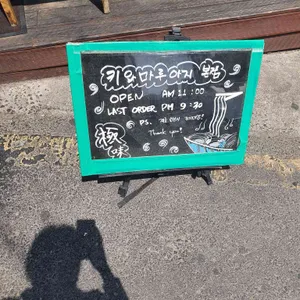 키요마루아지 본점
OPEN AM 11:00
LAST ORDER PM 9:30
P.S.
Thank you!
極
味